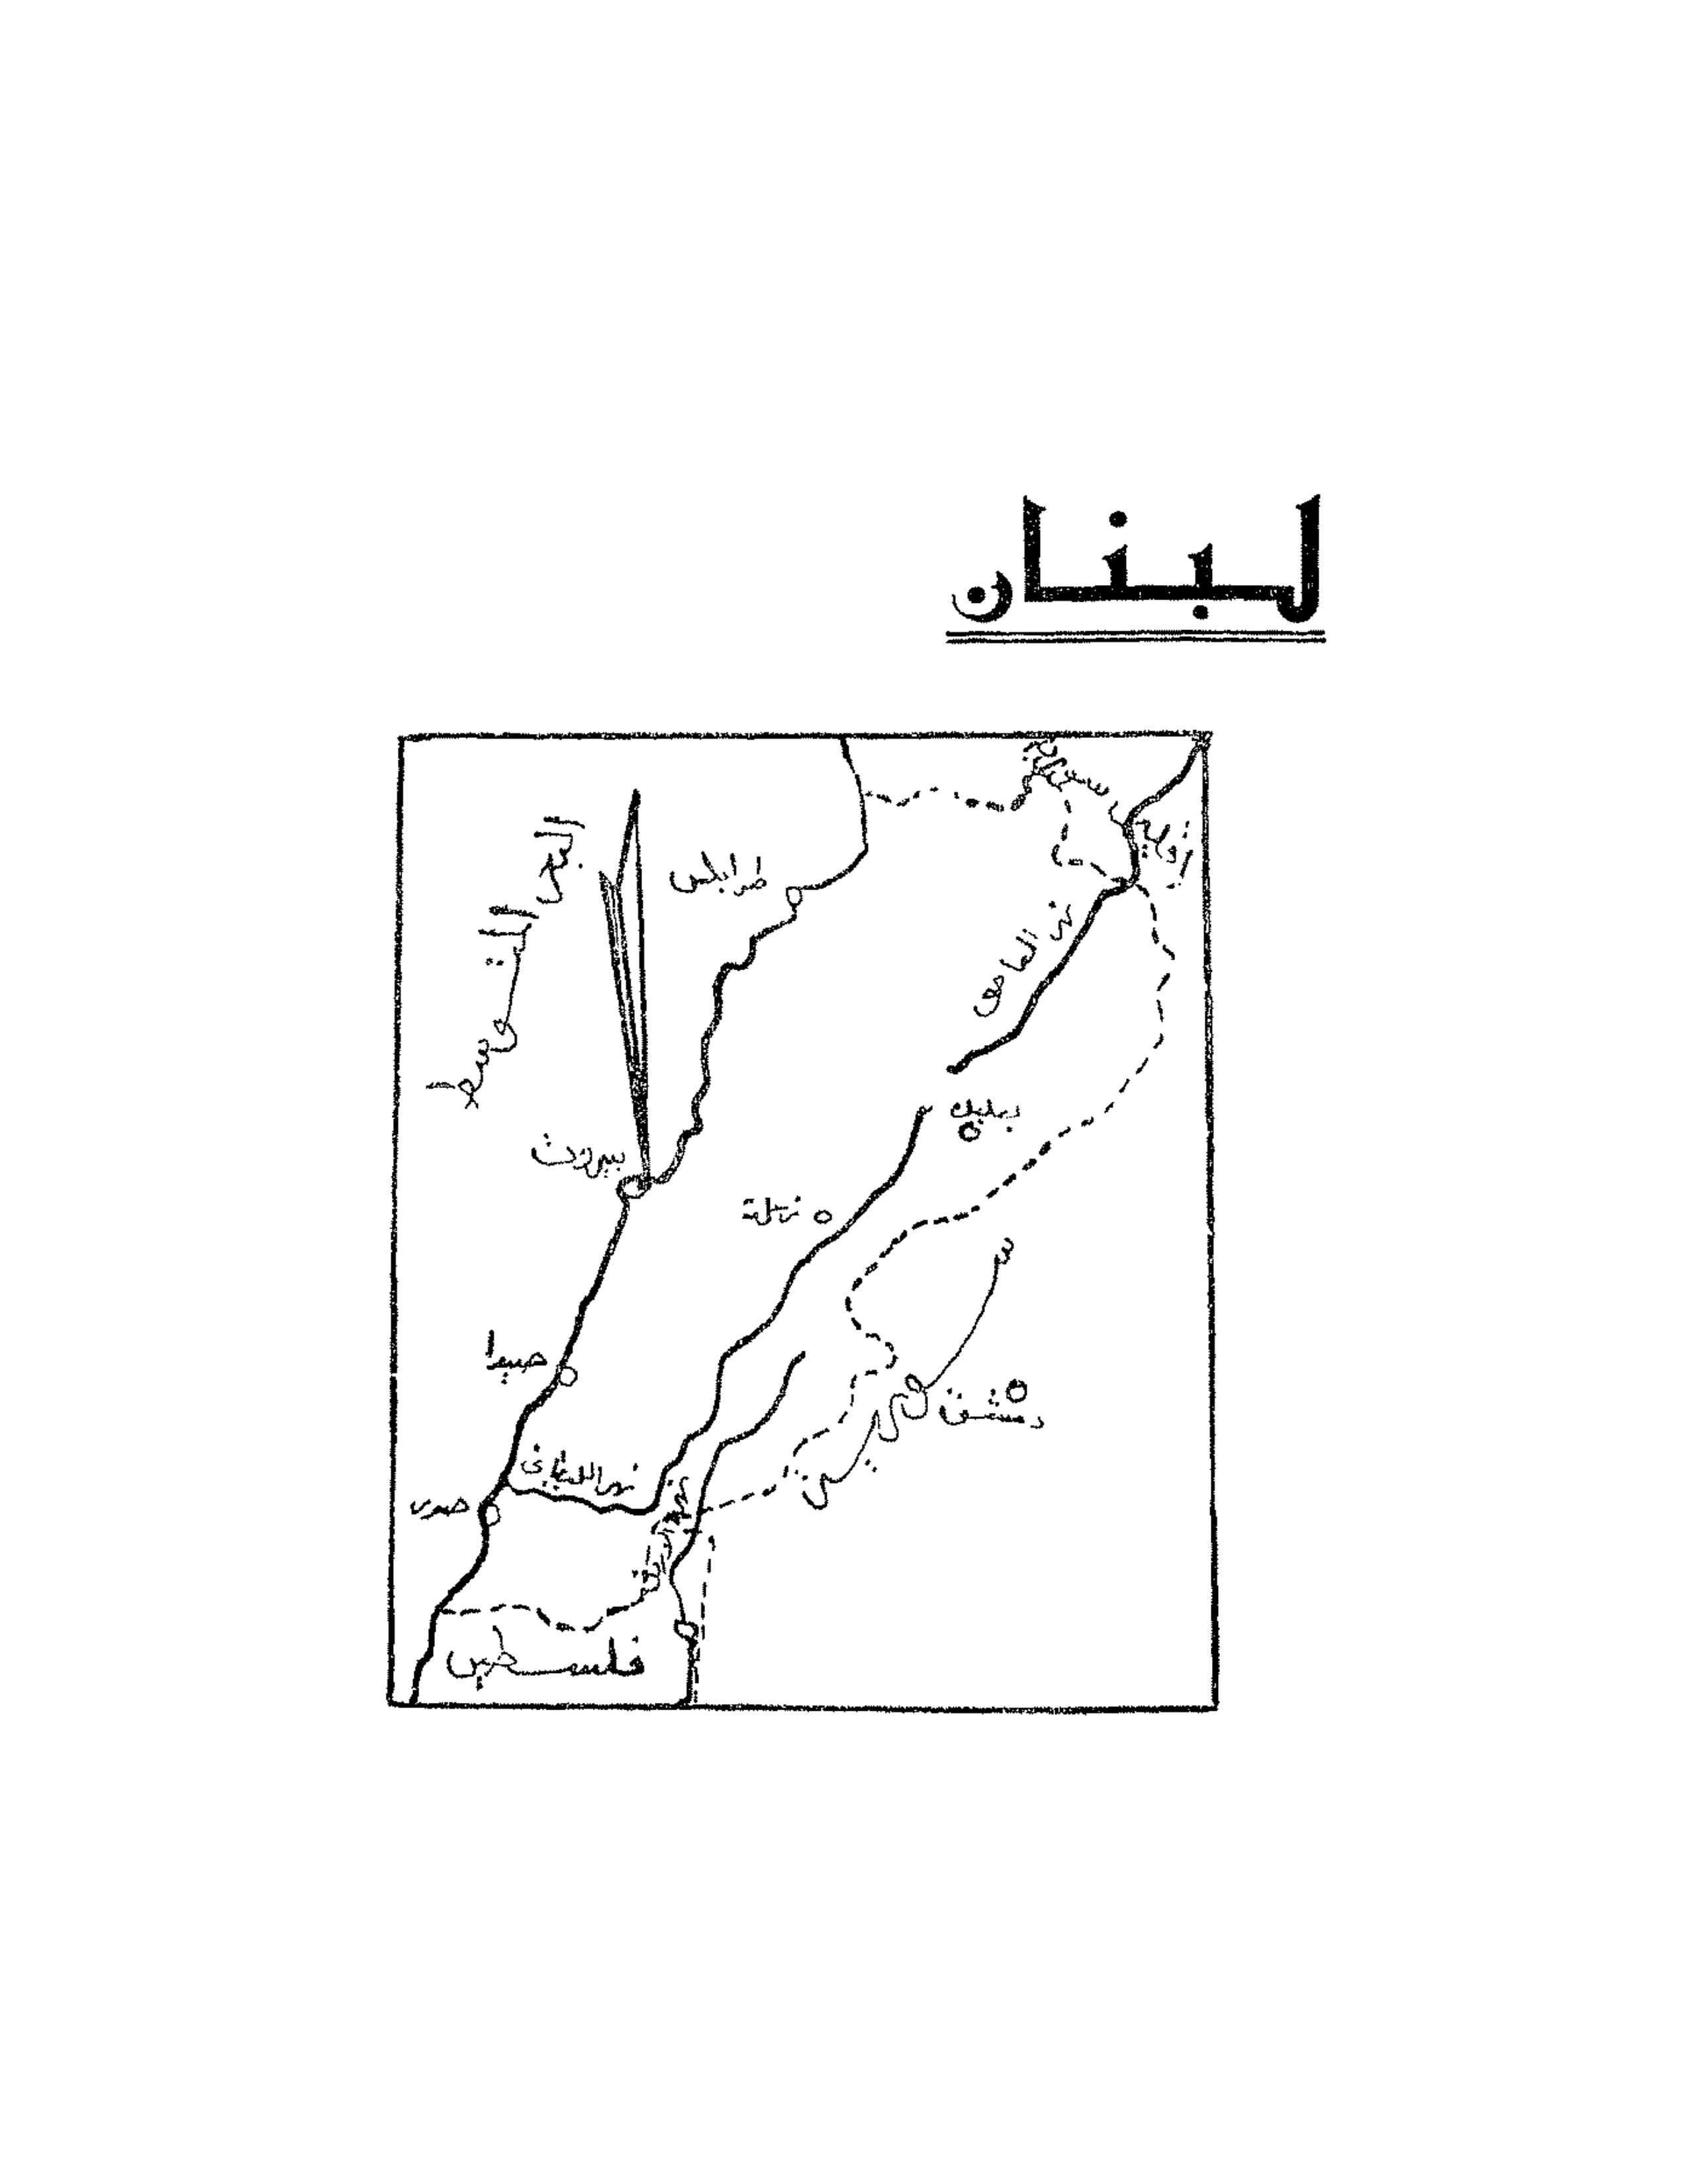 لبنان
البحر المتوسط
طرابلس
نهر العاصي
بعلبك
بيروت
زحلة
سورية
صيدا
دمشق
نهر الليطاني
صور
فلسطين